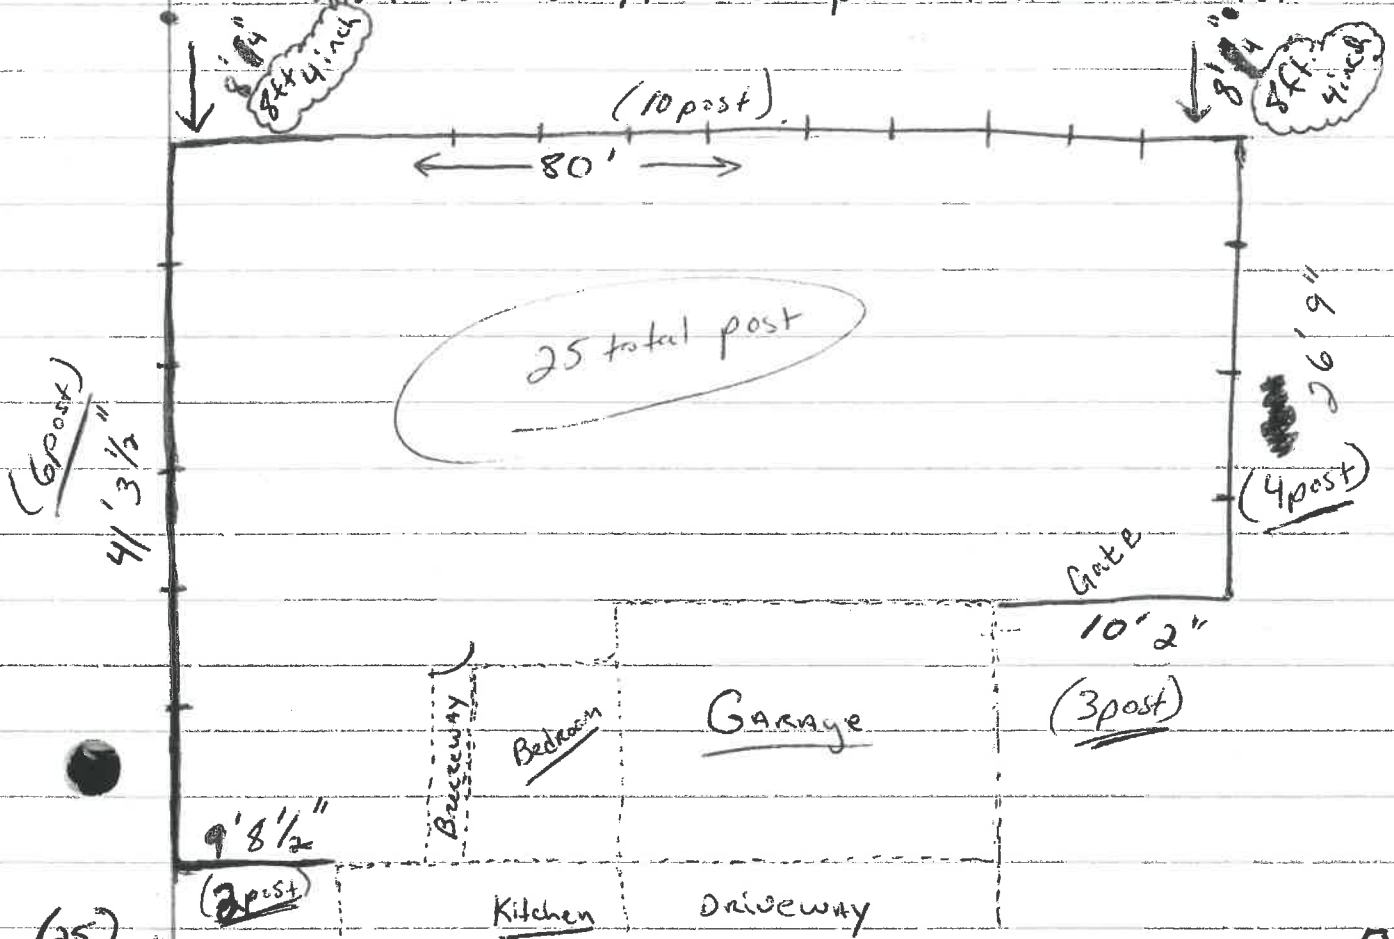 8' 1/4"
8ft 4inch
(10 post).
8' 1/4"
8ft. 4inch
80'
25 total post
26' 9"
(6post)
41' 3 1/2"
(4post)
Gate
10' 2"
(3post)
Breezeway
Bedroom
GARAGE
9' 8 1/2"
(2post)
Kitchen
DRIVEWAY
(25)